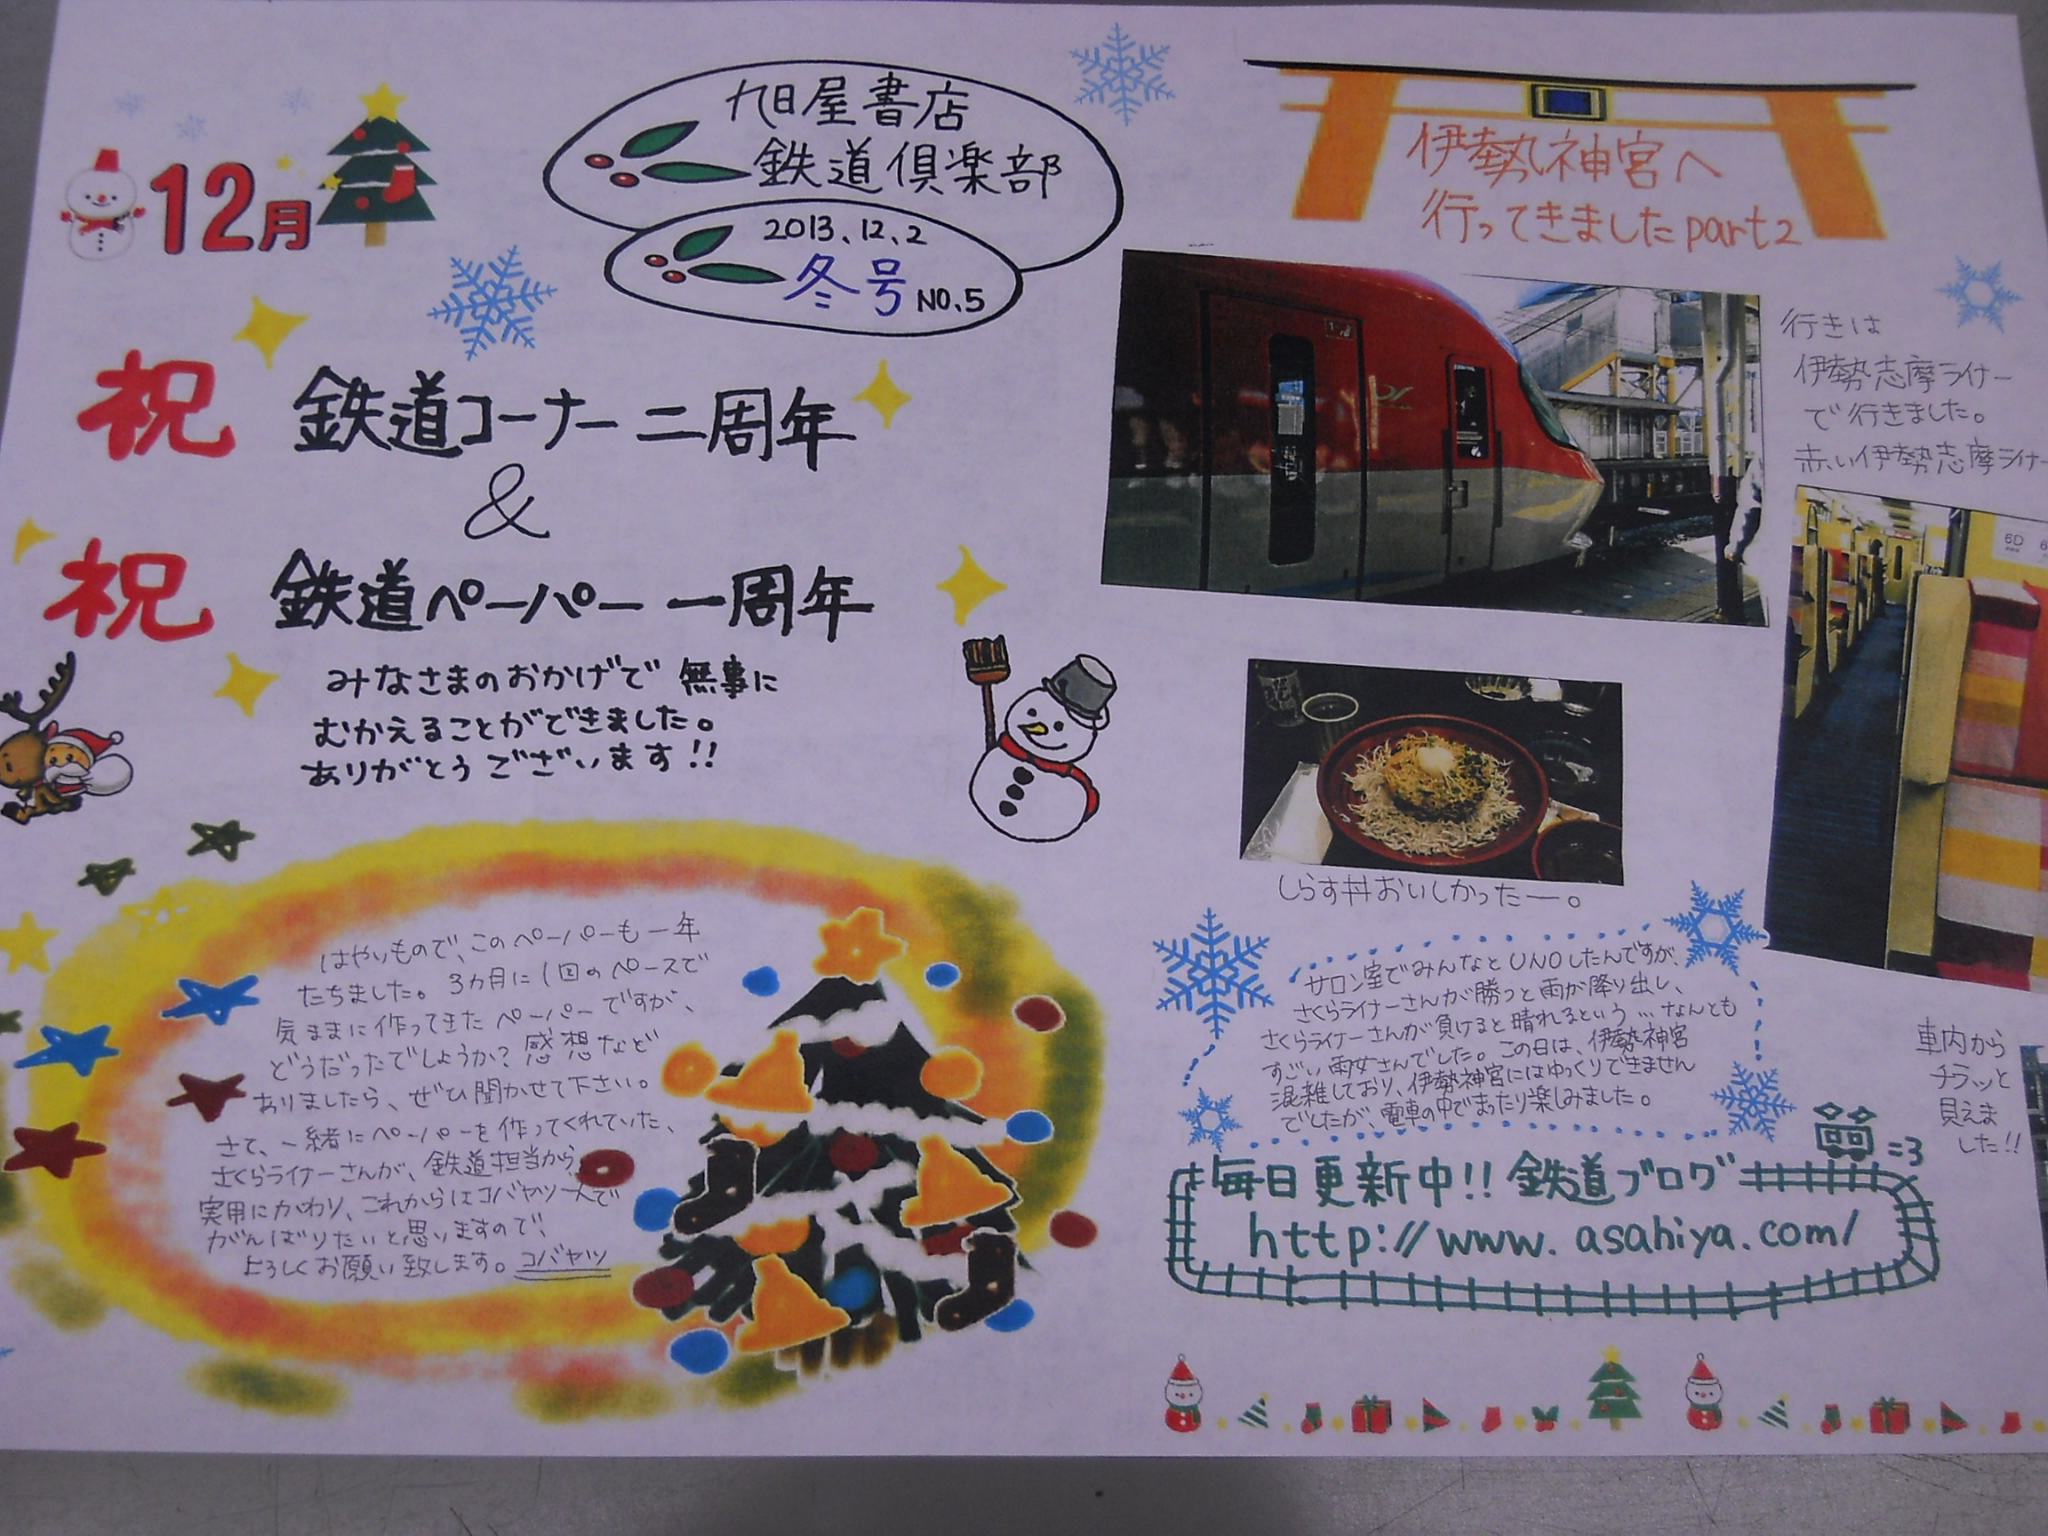 12月
旭屋書店
鉄道倶楽部
2013.12.2
冬号 NO.5
祝 鉄道コーナー 二周年
&
祝 鉄道ペーパー 一周年
みなさまのおかげで 無事に
むかえることができました。
ありがとうございます!!
はやいもので、このペーパーも一年
たちました。3ヵ月に1回のペースで
気ままに作ってきたペーパーですが、
どうだったでしょうか?感想など
ありましたら、ぜひ聞かせて下さい。
さて、一緒にペーパーを作ってくれていた、
さくらライナーさんが、鉄道担当から、
実用にかわり、これからはコバヤツ一人で
がんばりたいと思いますので、
よろしくお願い致します。コバヤツ
伊勢神宮へ
行ってきましたpart2
行きは
伊勢志摩ライナー
で行きました。
赤い伊勢志摩ライナー
6D
しらす丼おいしかったー。
サロン室でみんなとUNOしたんですが、
さくらライナーさんが勝つと雨が降り出し、
さくらライナーさんが負けると晴れるという…なんとも
すごい雨女さんでした。この日は、伊勢神宮
混雑しており、伊勢神宮にはゆっくりできません
でしたが、電車の中でまったり楽しみました。
車内から
チラッと
見えま
した!!
毎日更新中!! 鉄道ブログ
http://www.asahiya.com/